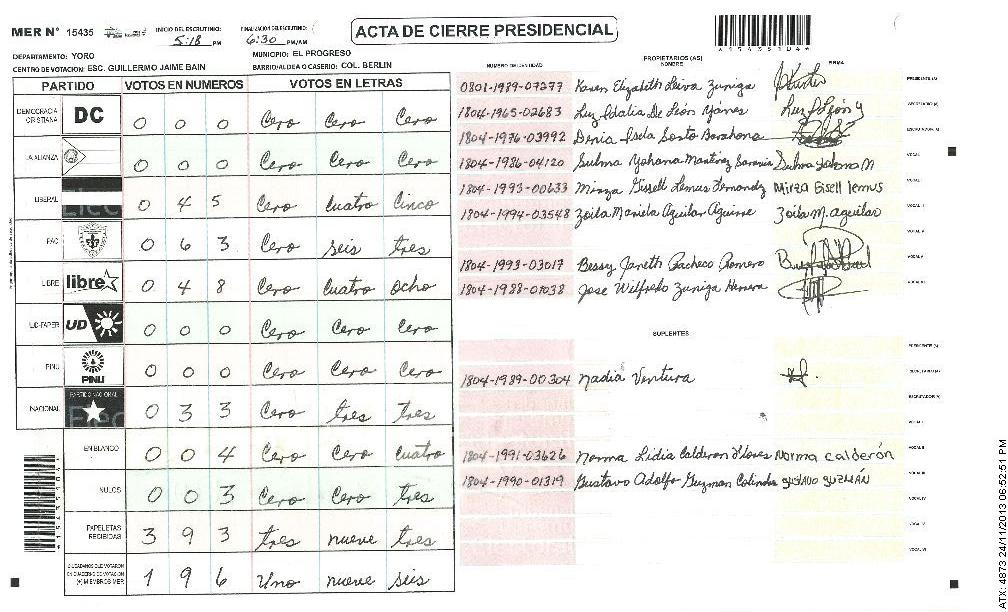 MER N° 15435 INICIO DEL ESCRUTINIO: 5:18 PM FINALIZACION DEL ESCRUTINIO: 6:30 PM/AM
ACTA DE CIERRE PRESIDENCIAL
DEPARTAMENTO: YORO MUNICIPIO: EL PROGRESO
CENTRO DE VOTACION: ESC. GUILLERMO JAIME BAIN BARRIO/ALDEA O CASERIO: COL. BERLIN
PARTIDO VOTOS EN NUMEROS VOTOS EN LETRAS
DEMOCRACIA CRISTIANA DC 0 0 0 Cero Cero Cero
LA ALIANZA 0 0 0 Cero Cero Cero
LIBERAL 0 4 5 Cero cuatro Cinco
PAC 0 6 3 Cero seis tres
LIBRE libre 0 4 8 Cero Cuatro ocho
UD-FAPER UD 0 0 0 Cero Cero Cero
PINU PINU 0 0 0 Cero Cero Cero
NACIONAL PARTIDO NACIONAL 0 3 3 Cero tres tres
EN BLANCO 0 0 4 Cero Cero cuatro
NULOS 0 0 3 Cero Cero tres
PAPELETAS RECIBIDAS 3 9 3 tres nueve tres
CIUDADANOS QUE VOTARON EN CUADERNO DE VOTACION (+) MIEMBROS MER 1 9 6 Uno nueve seis
PROPIETARIOS (AS)
NUMERO DE IDENTIDAD NOMBRE FIRMA
0801-1989-07277 Karen Elizabeth Leiva Zuniga PRESIDENTE (A)
1804-1965-02683 Luz Idalia De León Yánes Luz I León y SECRETARIO (A)
1804-1976-03992 Denia Isela Sosto Barahona ESCRUTADOR (A)
1804-1986-04120 Sulma Yohana Martinez Sulma Yohana M VOCAL I
1804-1993-00633 Mirza Gissell Lemus Fernandz Mirza Gisell lemus VOCAL II
1804-1994-03548 Zoila Mariela Aguilar Aguirre Zoila M. aguilar VOCAL III
VOCAL IV
1804-1993-03017 Bessy Janeth Pacheco Romero VOCAL V
1804-1988-01038 Jose Wilfredo Zuniga Herrera VOCAL VI
SUPLENTES
PRESIDENTE (A)
1804-1989-00304 Nadia Ventura SECRETARIO (A)
ESCRUTADOR (A)
VOCAL I
1804-1991-03626 Norma Lidia Calderon Flores Norma calderón VOCAL II
1804-1990-01319 Gustavo Adolfo Guzman Colindres GUSTAVO GUZMÁN VOCAL III
VOCAL IV
VOCAL V
VOCAL VI
ATX: 4873 24/11/2013 06:52:51 PM